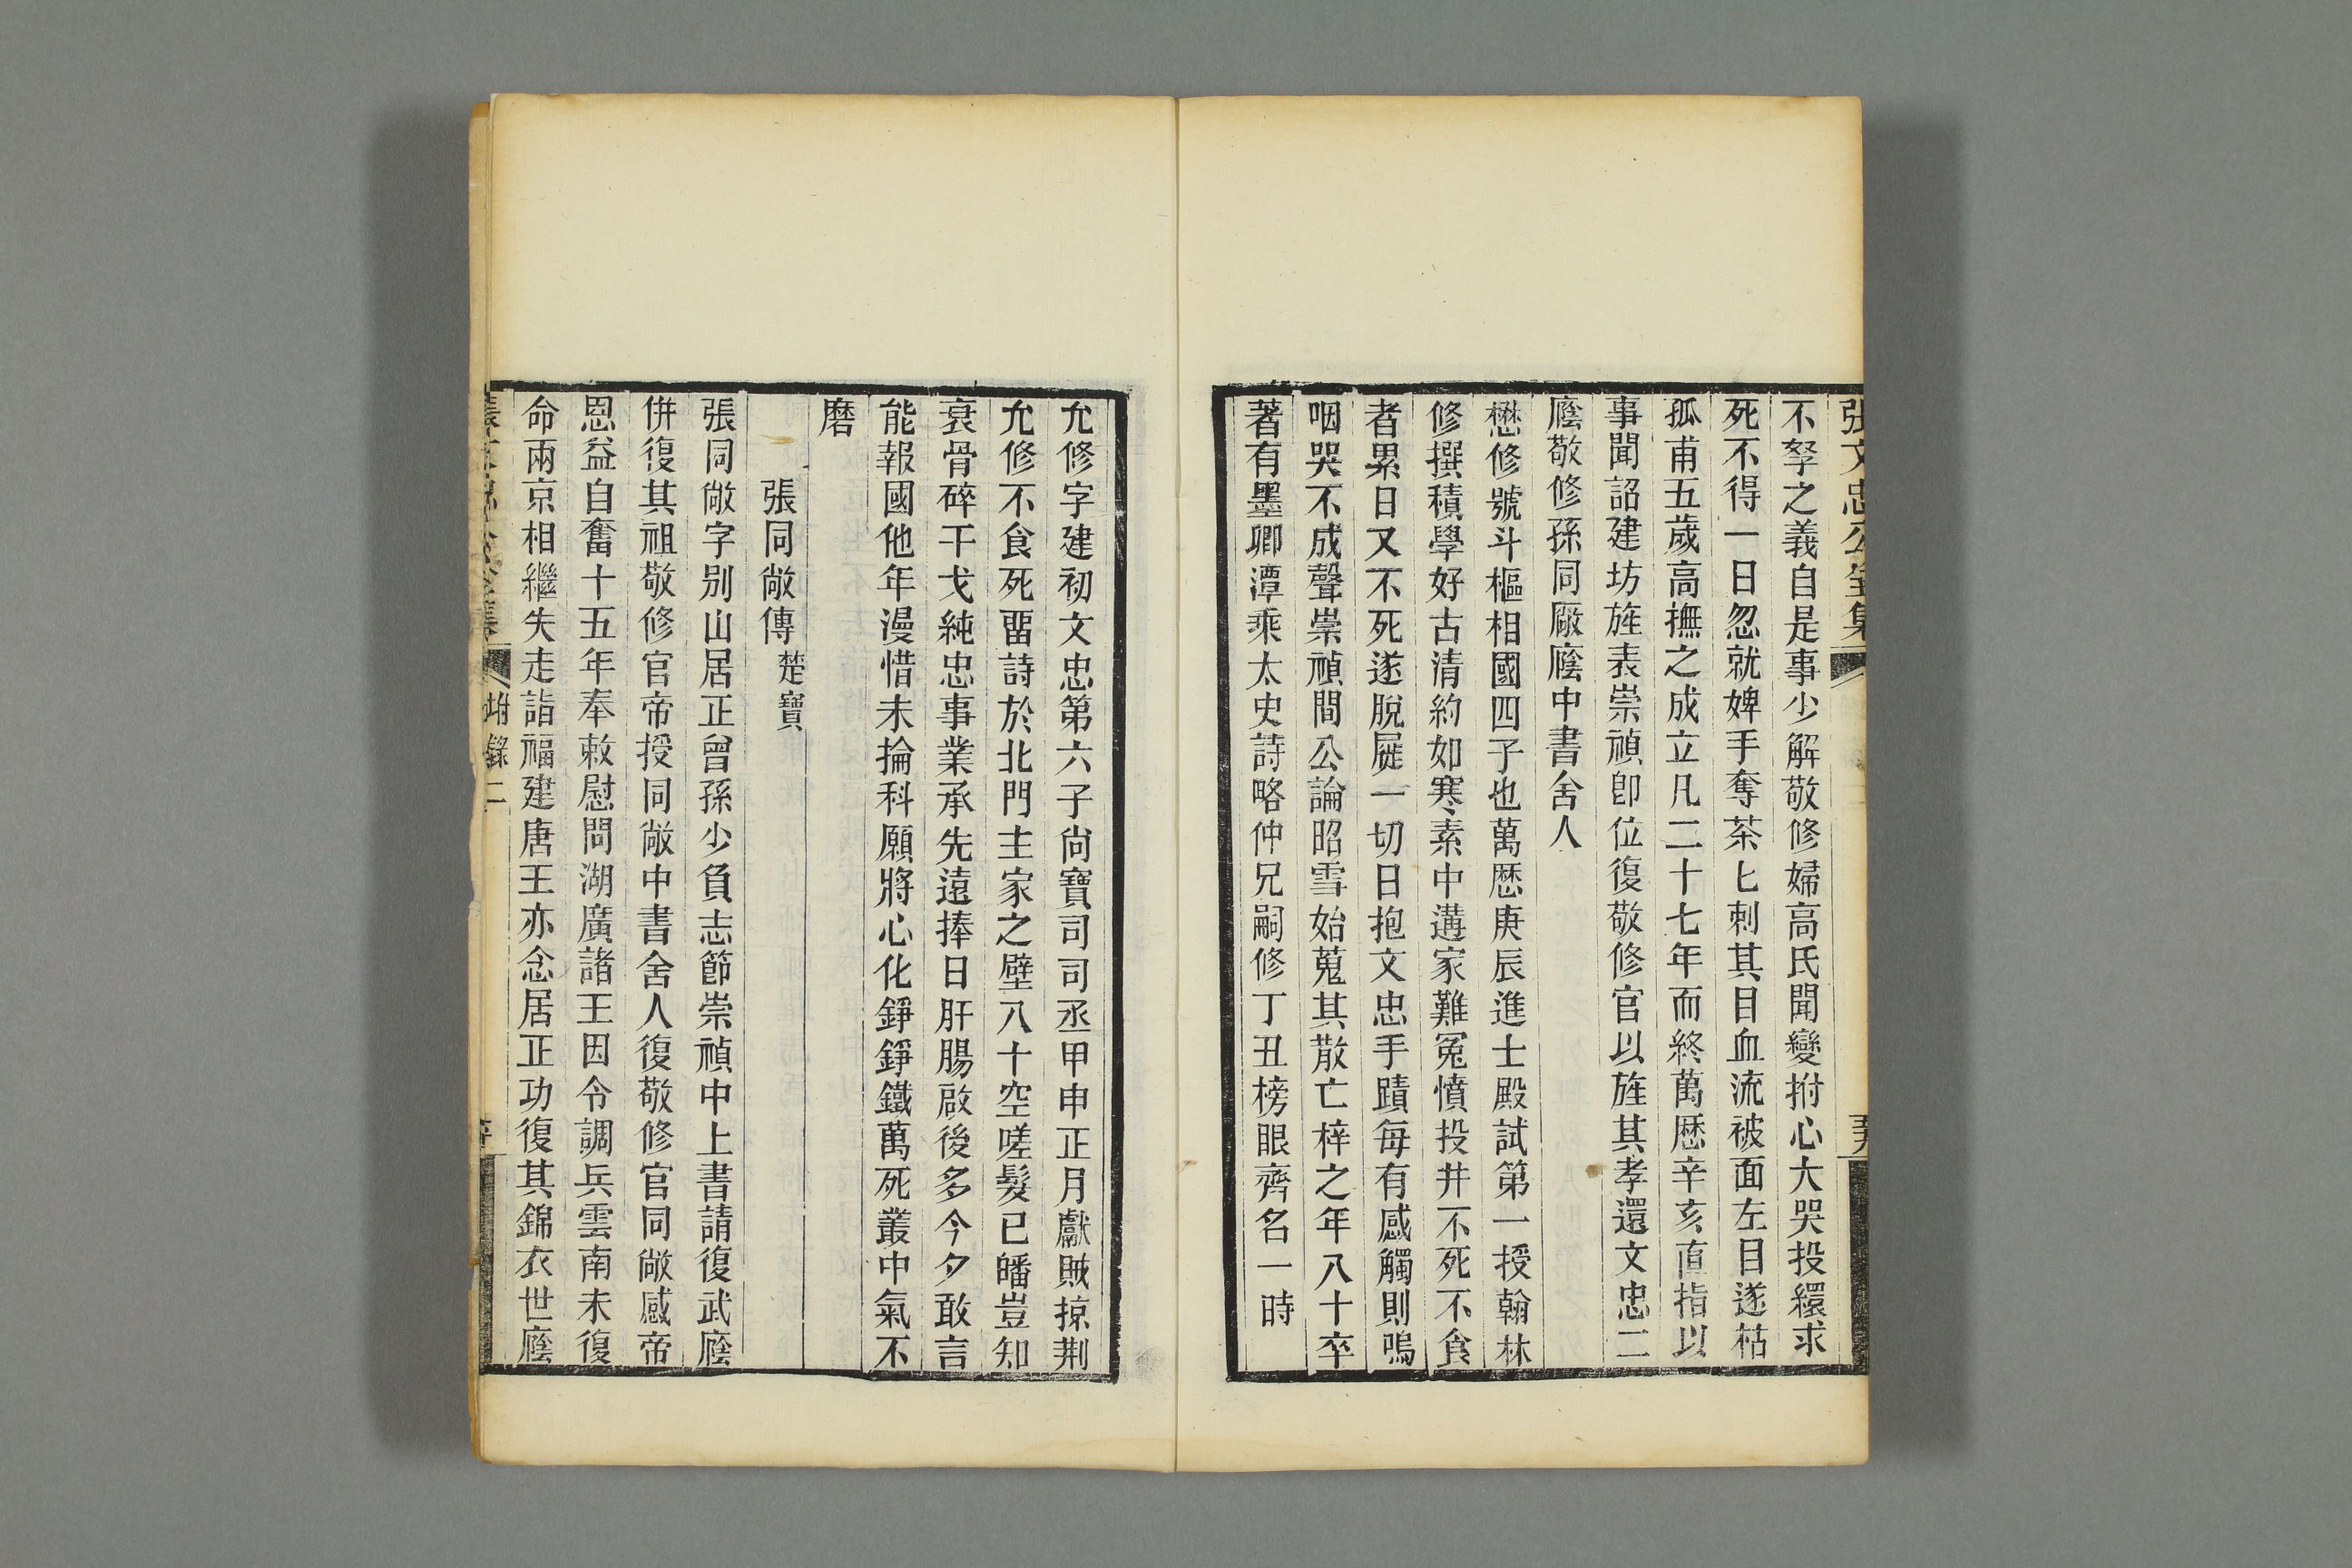 張文忠公全集
五九
不孥之義自是事少解敬修婦高氏聞變拊心大哭投繯求
死不得一日忽就婢手奪茶匕刺其目血流被面左目遂枯
孤甫五歲高撫之成立凡二十七年而終萬厯辛亥直指以
事聞詔建坊旌表崇禎卽位復敬修官以旌其孝還文忠二
廕敬修孫同厰廕中書舍人
懋修號斗樞相國四子也萬厯庚辰進士殿試第一授翰林
修撰積學好古清約如寒素中遘家難冤憤投井不死不食
者累日又不死遂脫屣一切日抱文忠手蹟每有感觸則嗚
咽哭不成聲崇禎間公論昭雪始蒐其散亡梓之年八十卒
著有墨卿潭乘太史詩略仲兄嗣修丁丑榜眼齊名一時
允修字建初文忠第六子尙寶司司丞甲申正月獻賊掠荆
允修不食死畱詩於北門主家之壁八十空嗟髮已皤豈知
衰骨碎干戈純忠事業承先遠捧日肝腸啟後多今夕敢言
能報國他年漫惜未掄科願將心化錚錚鐵萬死叢中氣不
磨
張同敞傳 楚寶
張同敞字别山居正曾孫少負志節崇禎中上書請復武廕
併復其祖敬修官帝授同敞中書舍人復敬修官同敞感帝
恩益自奮十五年奉敕慰問湖廣諸王因令調兵雲南未復
命兩京相繼失走詣福建唐王亦念居正功復其錦衣世廕
附錄二